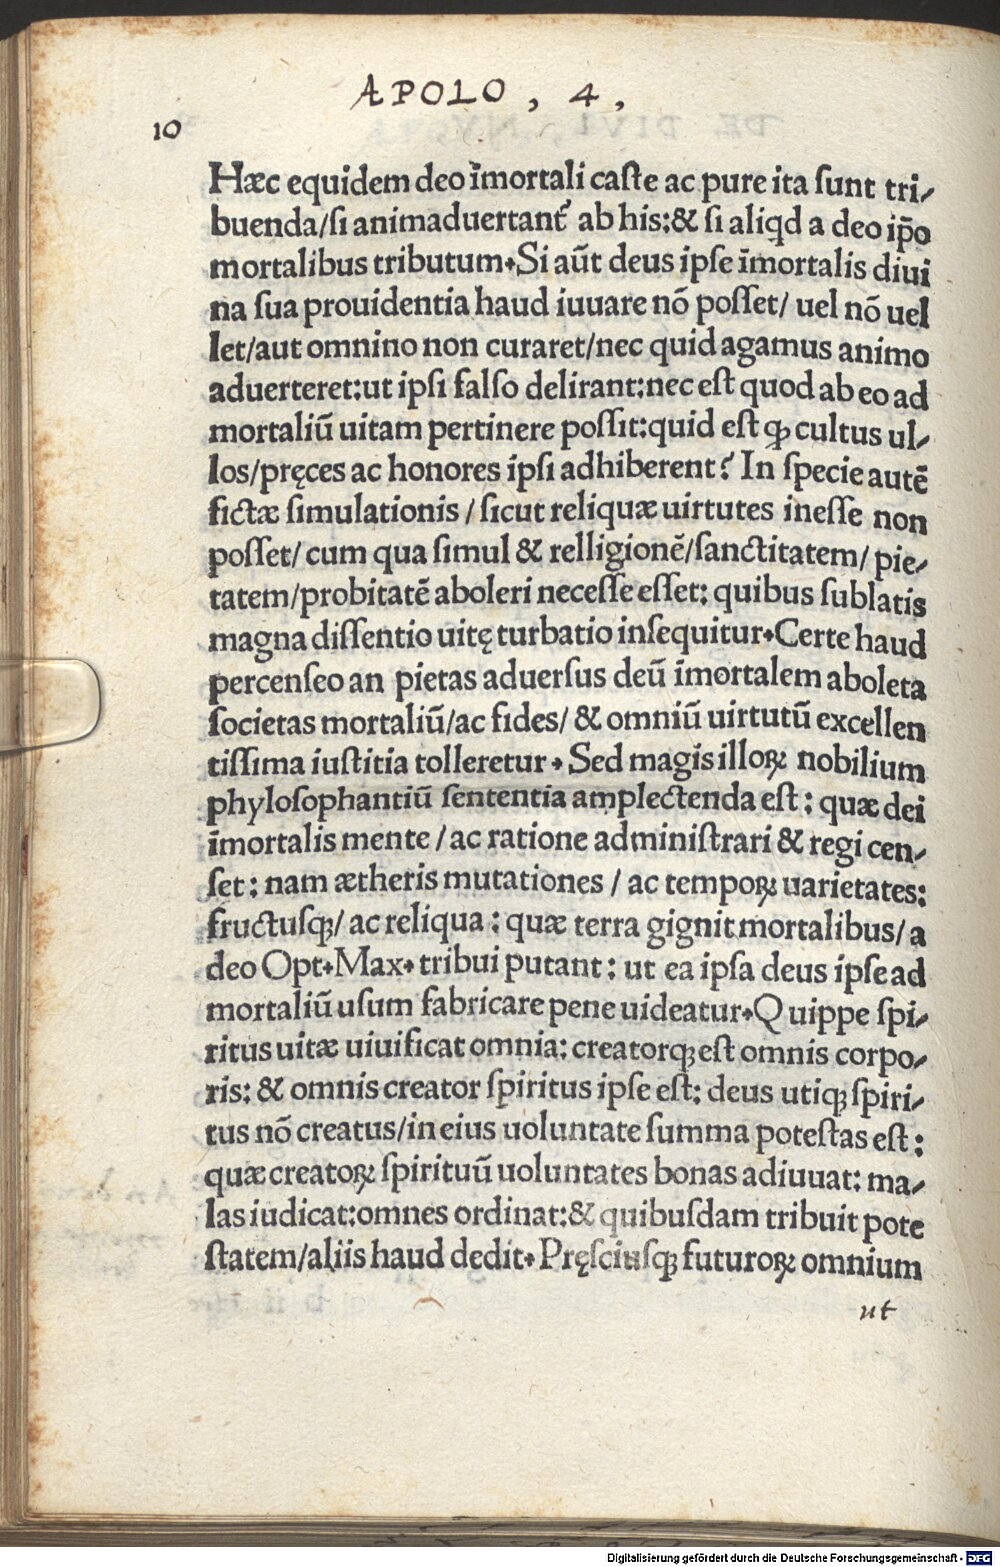 APOLO, 4,
10
Hæc equidem deo īmortali caſte ac pure ita ſunt tri⸗
buenda/ſi animaduertant᷑ ab his:& ſi aliqd a deo ip̄o
mortalibus tributum.Si aūt deus ipſe īmortalis diui
na ſua prouidentia haud iuuare nō poſſet/ uel nō uel
let/aut omnino non curaret/nec quid agamus animo
aduerteret:ut ipſi falſo delirant:nec eſt quod ab eo ad
mortaliū uitam pertinere poſſit:quid eſt ꝙ cultus ul⸗
los/pręces ac honores ipſi adhiberent? In ſpecie autē
fictæ ſimulationis / ſicut reliquæ uirtutes ineſſe non
poſſet/ cum qua ſimul & relligionē/ſanctitatem/ pie⸗
tatem/probitatē aboleri neceſſe eſſet: quibus ſublatis
magna diſſentio uitę turbatio inſequitur.Certe haud
percenſeo an pietas aduerſus deū īmortalem aboleta
ſocietas mortaliū/ac fides/ & omniū uirtutū excellen
tiſſima iuſtitia tolleretur. Sed magis illoꝝ nobilium
phyloſophantiū ſententia amplectenda eſt: quæ dei
īmortalis mente / ac ratione adminiſtrari & regi cen⸗
ſet: nam ætheris mutationes / ac tempoꝝ uarietates:
fructuſq;/ ac reliqua: quæ terra gignit mortalibus/ a
deo Opt.Max.tribui putant: ut ea ipſa deus ipſe ad
mortaliū uſum fabricare pene uideatur.Quippe ſpi⸗
ritus uitæ uiuificat omnia: creatorq; eſt omnis corpo⸗
ris: & omnis creator ſpiritus ipſe eſt: deus utiq; ſpiri⸗
tus nō creatus/in eius uoluntate ſumma poteſtas eſt:
quæ creatoꝝ ſpirituū uoluntates bonas adiuuat: ma⸗
las iudicat:omnes ordinat:& quibuſdam tribuit pote
ſtatem/aliis haud dedit. Pręſciuſq; futuroꝝ omnium
ut
Digitalisierung gefördert durch die Deutsche Forschungsgemeinschaft - DFG